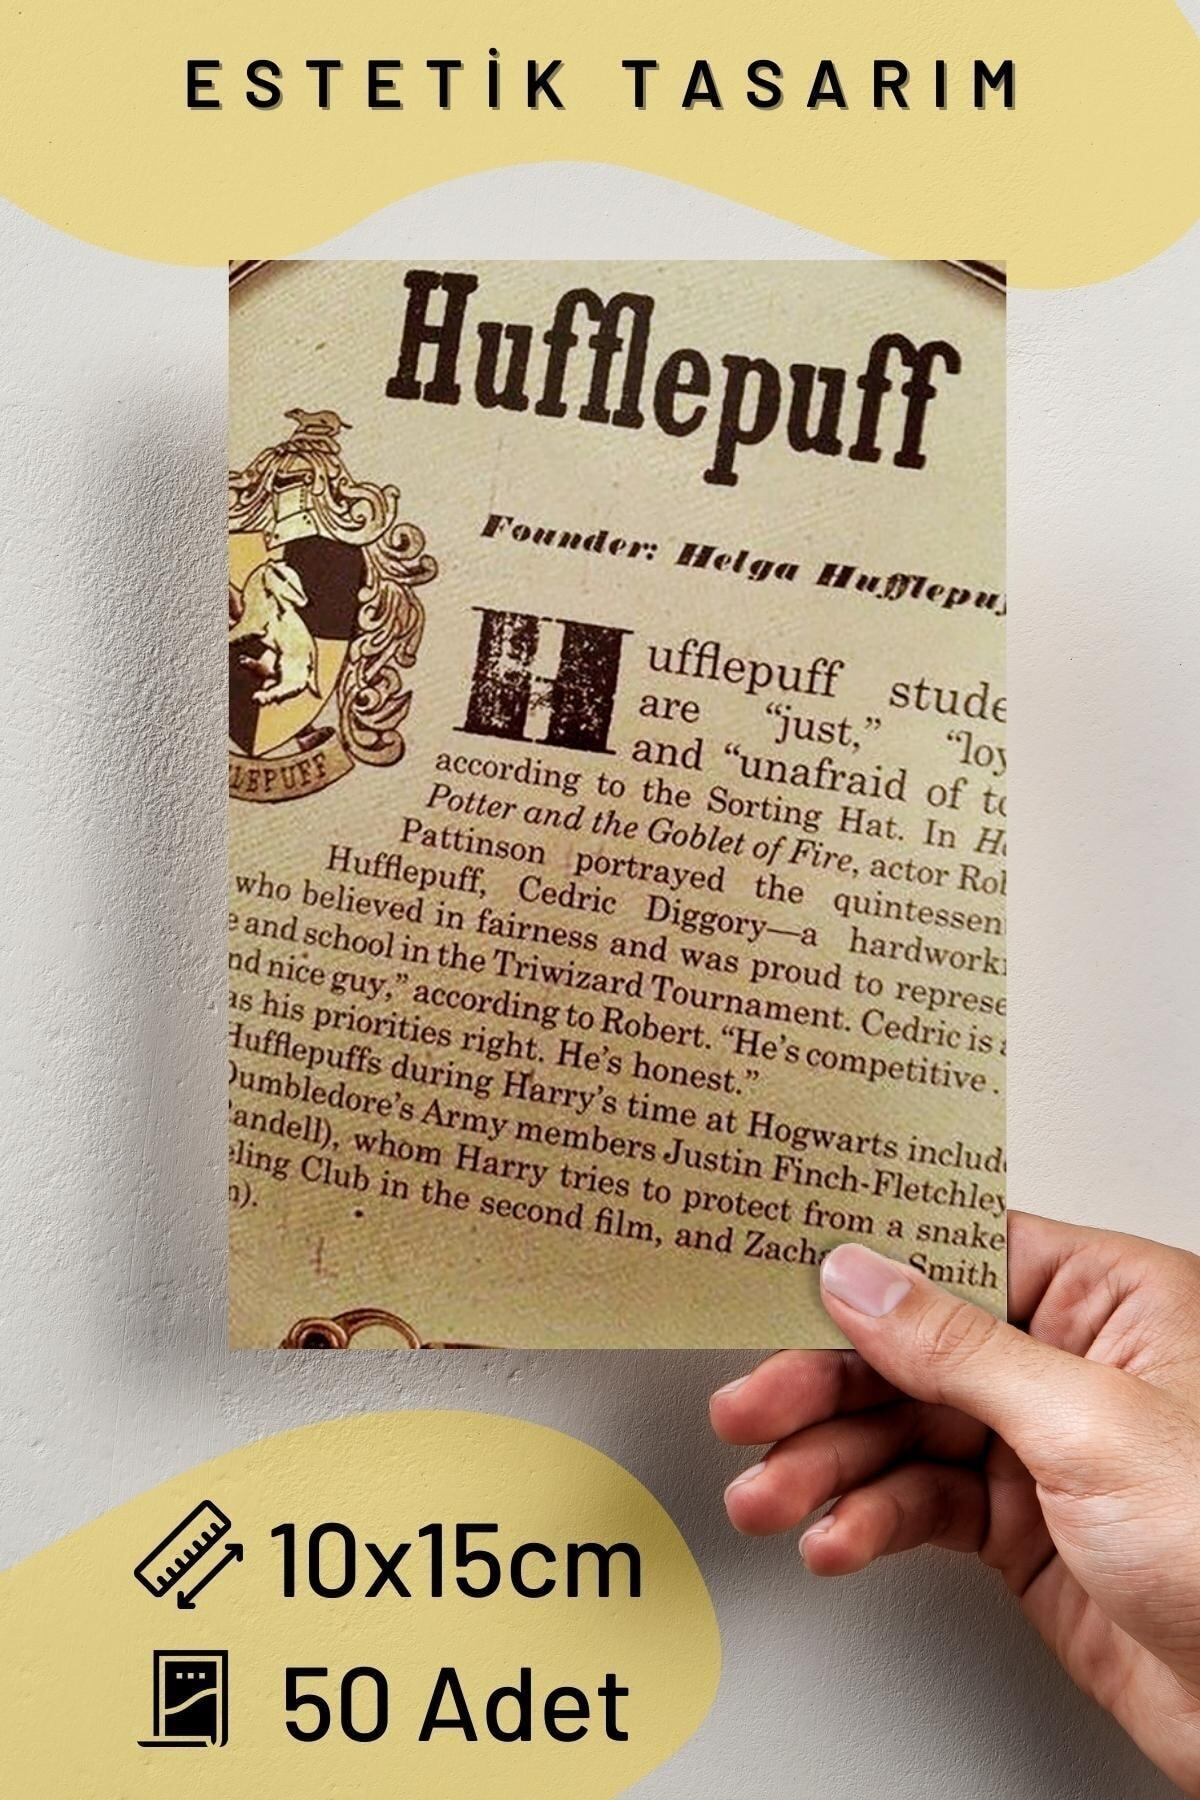 ESTETİK TASARIM
Hufflepuff
Founder: Helga Hufflepuf
LEPUFF
Hufflepuff stude
are "just," "loy
and "unafraid of to
according to the Sorting Hat. In Ha
Potter and the Goblet of Fire, actor Rob
Pattinson portrayed the quintessen
Hufflepuff, Cedric Diggory—a hardworki
who believed in fairness and was proud to represe
e and school in the Triwizard Tournament. Cedric is a
nd nice guy," according to Robert. "He's competitive .
as his priorities right. He's honest."
Hufflepuffs during Harry's time at Hogwarts include
Dumbledore's Army members Justin Finch-Fletchley
andell), whom Harry tries to protect from a snake
eling Club in the second film, and Zacha Smith
n).
10x15cm
50 Adet